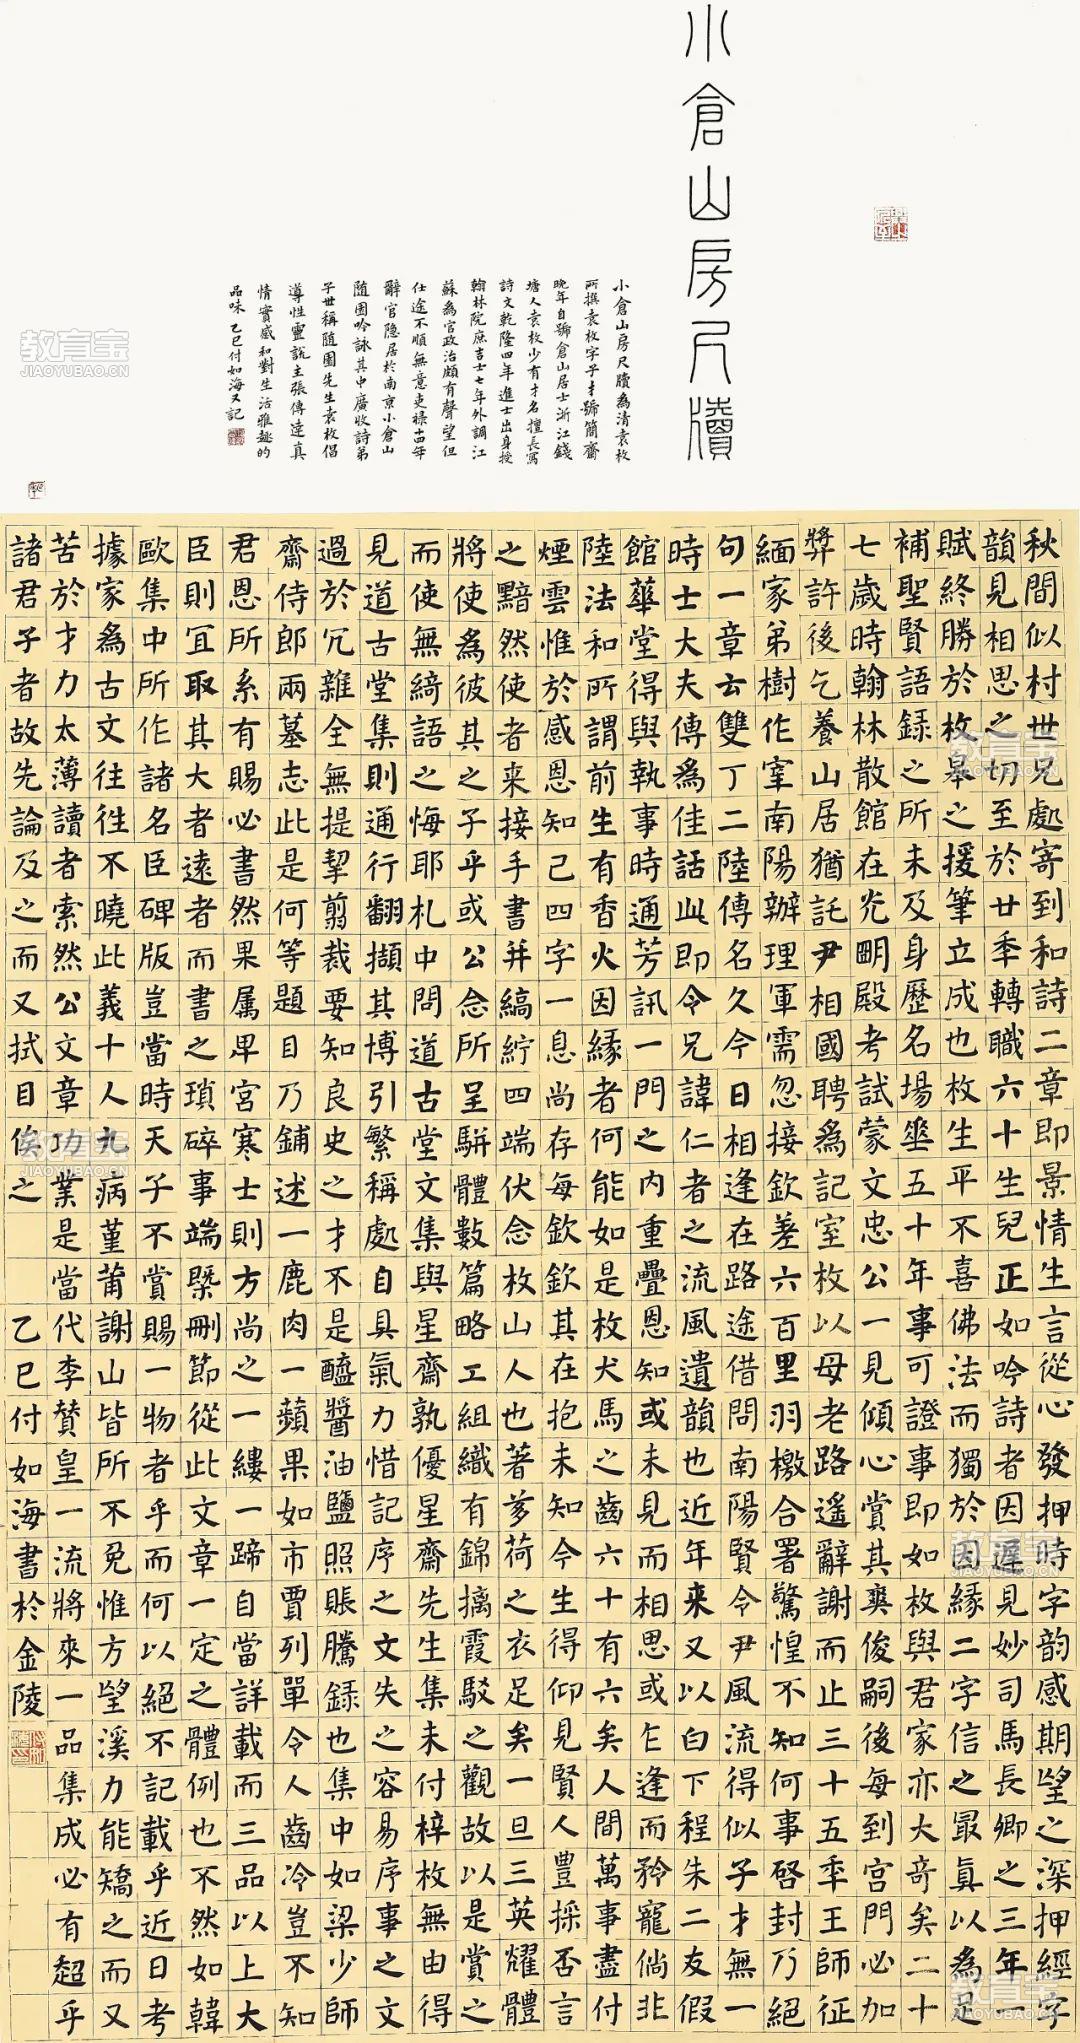 小倉山房尺牘
小倉山房尺牘為清袁枚
所撰袁枚字子才號簡齋
晚年自號倉山居士浙江錢
塘人袁枚少有才名擅長寫
詩文乾隆四年進士出身授
翰林院庶吉士七年外調江
蘇為官政治頗有聲望但
仕途不順無意吏祿十四年
辭官隱居於南京小倉山
隨園吟詠其中廣收詩弟
子世稱隨園先生袁枚倡
導性靈說主張傳達真
情實感和對生活雅趣的
品味 乙巳付如海又記
秋間似村世兄處寄到和詩二章即景情生言從心發押時字韵感期望之深押經字
韻見相思之切至於廿季轉職六十生兒正如吟詩者因遲見妙司馬長卿之三年一
賦終勝於枚皋之援筆立成也枚生平不喜佛法而獨於因緣二字信之最真以為足
補聖賢語録之所未及身歷名場垂五十年事可證事即如枚與君家亦大奇矣二十
七歲時翰林散館在光明殿考試蒙文忠公一見傾心賞其奭俊嗣後每到宮門必加
獎許後乞養山居猶託尹相國聘為記室枚以母老路遙辭謝而止三十五季王師征
緬家弟樹作宰南陽辦理軍需忽接欽差六百里羽檄合署驚惶不知何事啓封乃絕
句一章云雙丁二陸傳名久今日相逢在路途借問南陽賢令尹風流得似子才無一
時士大夫傳為佳話此即令兄諱仁者之流風遺韻也近年来又以白下程朱二友假
館華堂得與執事時通芳訊一門之内重疊恩知或未見而相思或乍逢而矜寵倘非
陸法和所謂前生有香火因緣者何能如是枚犬馬之齒六十有六矣人間萬事盡付
煙雲惟於感恩知己四字一息尚存每欽欽其在抱未知今生得仰見賢人豐採否言
之黯然使者来接手書并縞紵四端伏念枚山人也著芰荷之衣足矣一旦三英耀體
將使為彼其之子乎或公念所呈駢體數篇略工組織有錦摛霞駁之觀故以是賞之
而使無綺語之悔耶札中問道古堂文集與星齋孰優星齋先生集未付梓枚無由得
見道古堂集則通行翻擷其博引繁稱處自具氣力惜記序之文失之容易序事之文
過於冗雜全無提挈翦裁要知良史之才不是醯醬油鹽照賬騰録也集中如梁少師
齋侍郎兩墓志此是何等題目乃鋪述一鹿肉一蘋果如市賈列單令人齒冷豈不知
君恩所系有賜必書然果属卑宮寒士則方尚之一縷一蹄自當詳載而三品以上大
臣則宜取其大者遠者而書之瑣碎事端槩刪節從此文章一定之體例也不然如韓
歐集中所作諸名臣碑版豈當時天子不賞賜一物者乎而何以絕不記載乎近日考
據家為古文往往不曉此義十人九病堇莆謝山皆所不免惟方望溪力能矯之而又
苦於才力太薄讀者索然公文章功業是當代李贊皇一流將來一品集成必有超乎
諸君子者故先論及之而又拭目俟之 乙巳付如海書於金陵
教育宝
JIAOYUBAO.COM
教育宝
JIAOYUBAO.COM
教育宝
JIAOYUBAO.COM
教育宝
JIAOYUBAO.COM
教育宝
JIAOYUBAO.COM